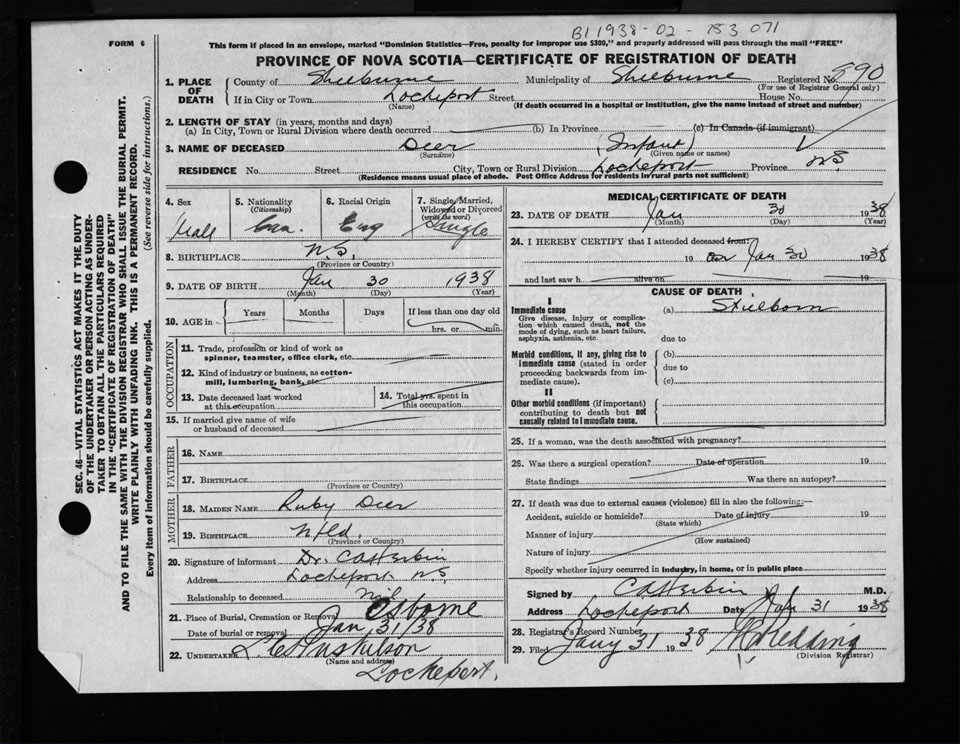 B11938-02-153 071
FORM 6
This form if placed in an envelope, marked "Dominion Statistics—Free, penalty for improper use $300," and properly addressed will pass through the mail "FREE"
PROVINCE OF NOVA SCOTIA—CERTIFICATE OF REGISTRATION OF DEATH
1. PLACE OF DEATH County of Shelburne Municipality of Shelburne Registered No. 890
(For use of Registrar General only)
If in City or Town Lockeport Street House No.
(Name) (If death occurred in a hospital or institution, give the name instead of street and number)
2. LENGTH OF STAY (in years, months and days)
(a) In City, Town or Rural Division where death occurred (b) In Province (c) In Canada (if immigrant)
3. NAME OF DECEASED Deer (Infant)
(Surname) (Given name or names)
RESIDENCE No. Street City, Town or Rural Division Lockeport Province N.S.
(Residence means usual place of abode. Post Office Address for residents in rural parts not sufficient)
4. Sex 5. Nationality (Citizenship) 6. Racial Origin 7. Single, Married, Widowed or Divorced (write the word)
Male Can. Eng Single
8. BIRTHPLACE N.S.
(Province or Country)
9. DATE OF BIRTH Jan 30 1938
(Month) (Day) (Year)
10. AGE in Years Months Days If less than one day old
hrs. or min.
OCCUPATION
11. Trade, profession or kind of work as spinner, teamster, office clerk, etc.
12. Kind of industry or business, as cotton-mill, lumbering, bank, etc.
13. Date deceased last worked at this occupation
14. Total yrs. spent in this occupation
15. If married give name of wife or husband of deceased
FATHER
16. NAME
17. BIRTHPLACE
(Province or Country)
MOTHER
18. MAIDEN NAME Ruby Deer
19. BIRTHPLACE Nfld.
(Province or Country)
20. Signature of informant Dr. CA Herbin
Address Lockeport N.S.
Relationship to deceased Nil
21. Place of Burial, Cremation or Removal Osborne
Date of burial or removal Jan 31/38
22. UNDERTAKER
(Name and address)
Lockeport.
MEDICAL CERTIFICATE OF DEATH
23. DATE OF DEATH Jan 30 1938
(Month) (Day) (Year)
24. I HEREBY CERTIFY that I attended deceased from:
19 on Jan 30 1938
and last saw h alive on 19
CAUSE OF DEATH
I
Immediate cause (a) Stillborn
Give disease, injury or complication which caused death, not the mode of dying, such as heart failure, asphyxia, asthenia, etc.
due to
Morbid conditions, if any, giving rise to immediate cause (stated in order proceeding backwards from immediate cause).
(b)
due to
(c)
II
Other morbid conditions (if important) contributing to death but not causally related to immediate cause.
25. If a woman, was the death associated with pregnancy?
26. Was there a surgical operation? Date of operation 19
State findings Was there an autopsy?
27. If death was due to external causes (violence) fill in also the following:—
Accident, suicide or homicide? Date of injury 19
(State which)
Manner of injury
(How sustained)
Nature of injury
Specify whether injury occurred in industry, in home, or in public place
Signed by CA Herbin M.D.
Address Lockeport Date Jan 31 1938
28. Registrar's Record Number
29. Filed Jany 31 1938 Redding
(Division Registrar)
SEC. 46—VITAL STATISTICS ACT MAKES IT THE DUTY
OF THE UNDERTAKER OR PERSON ACTING AS UNDER-
TAKER TO OBTAIN ALL THE PARTICULARS REQUIRED
IN THE "CERTIFICATE OF REGISTRATION OF DEATH"
AND TO FILE THE SAME WITH THE DIVISION REGISTRAR WHO SHALL ISSUE THE BURIAL PERMIT.
WRITE PLAINLY WITH UNFADING INK. THIS IS A PERMANENT RECORD.
Every item of information should be carefully supplied. (See reverse side for instructions.)